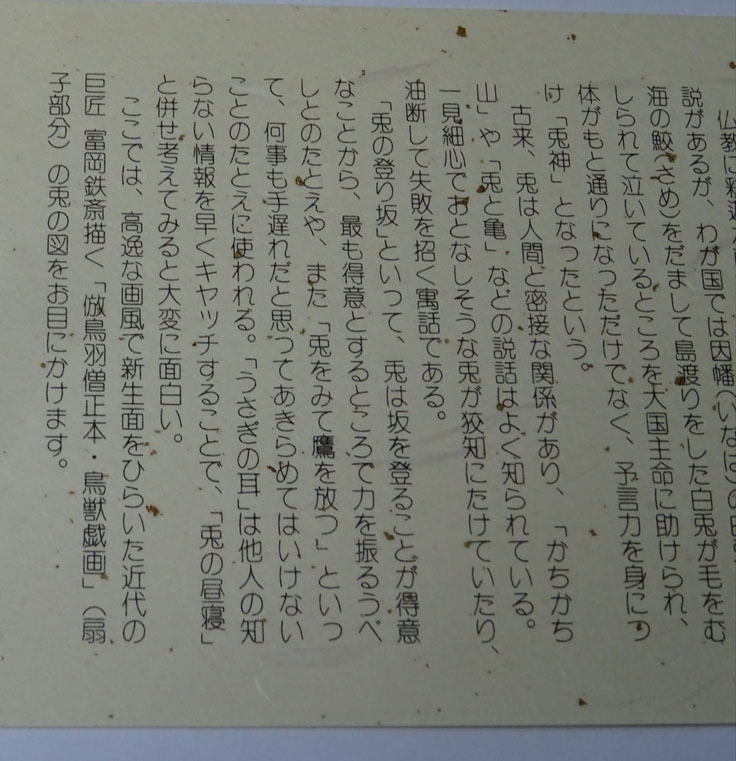 仏教に釈迦
説があるが、わが国では因幡(いなば)の白兎
海の鮫(さめ)をだまして島渡りをした白兎が毛をむ
しられて泣いているところを大国主命に助けられ、
体がもと通りになっただけでなく、予言力を身につ
け「兎神」となったという。
古来、兎は人間と密接な関係があり、「かちかち
山」や「兎と亀」などの説話はよく知られている。
一見細心でおとなしそうな兎が狡知にたけていたり、
油断して失敗を招く寓話である。
「兎の登り坂」といって、兎は坂を登ることが得意
なことから、最も得意とするところで力を振るうべ
しとのたとえや、また「兎をみて鷹を放つ」といっ
て、何事も手遅れだと思ってあきらめてはいけない
ことのたとえに使われる。「うさぎの耳」は他人の知
らない情報を早くキャッチすることで、「兎の昼寝」
と併せ考えてみると大変に面白い。
ここでは、高逸な画風で新生面をひらいた近代の
巨匠 富岡鉄斎描く「倣鳥羽僧正本・鳥獣戯画」(扇
子部分)の兎の図をお目にかけます。